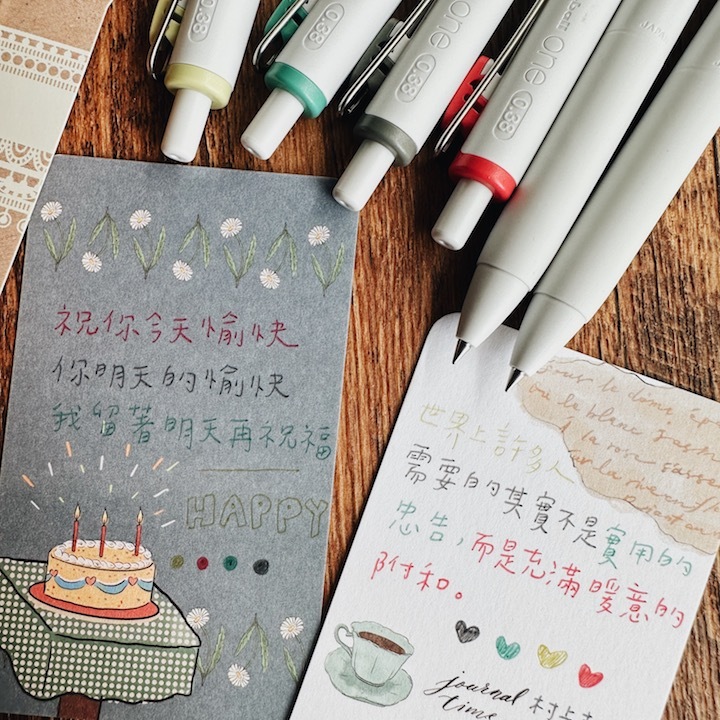 0.38
0.38
one 0.38
Sarasa one 0.38
JAPAN
祝你今天愉快
你明天的愉快
我留著明天再祝福
HAPPY
世界上許多人
需要的其實不是實用的
忠告,而是充滿暖意的
附和。
journal
time
村上